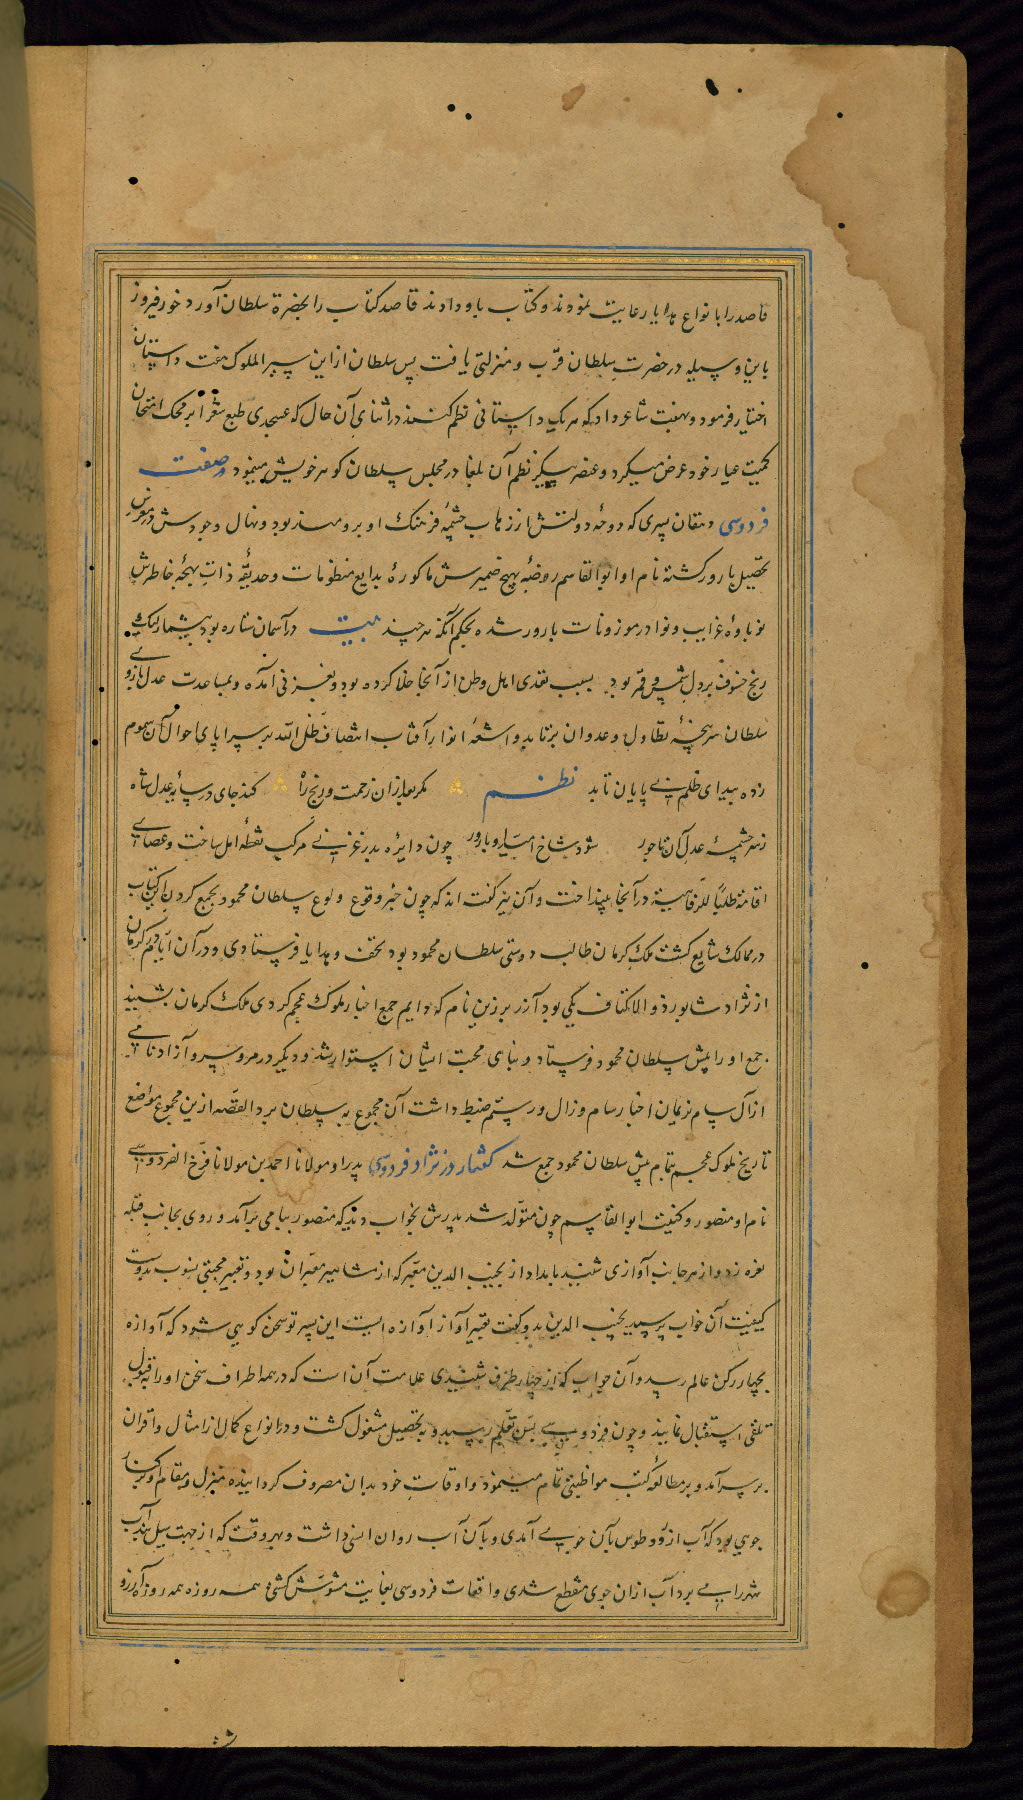 قاصد را با نواع هدایا رعایت نمودند و کتاب باو دادند قاصد کتاب را بحضرة سلطان آورد خور فیروز
باین وسیله در حضرت سلطان قرب و منزلتی یافت پس سلطان ازاین سیر الملوک هفت داستان
اختیار فرمود و بهفت شاعر داد که هر یک داستانی نظم کنند در اثنای آن حال که عسجدی طبع شعرا بر محک امتحان
کمیت عیار خود عرض میکرد و عنصر پیکر نظم آن بلغا در مجلس سلطان کوهر خویش مینمود وصفت
فردوسی دهقان پسری که دوحه دولتش از زهاب چشمه فرهنگ او برومند بود و نهال وجودش در معرض
تحصیل بارور کشته نام او ابوالقاسم روضه بهیج ضمیرش باکوره بدایع منظومات و حدیقه ذات بهجه خاطرش
نوباوه غرایب و نوادر موزونات بارور شده بحکم آنکه هر چند بیت در آسمان ستاره بود بیشمار لیک
رنج خسوف بر دل شمس و قمر بود بسبب تعدی اهل وطن از آنجا جلا کرده بود و بغزنی آمده و بمساعدت عدل بازوی
سلطان سر پنجه تطاول و عدوان برتابد و اشعه انوار آفتاب انتصاف ظل الله بر سراپای احوال آن سموم
زده بیدای ظلم بی پایان تابد نظم مکر بعد ازان زحمت و رنج راه کند جای در سایه عدل شاه
زسرچشمه عدل آن تاجور شود شاخ امیدا و بارور چون دایره بدر غزنی مرکب نقطه امل ساخت و عصای
اقامة طلبا للرفاهیة در آنجا بینداخت و آن نیز کفت اند که چون خبر وقوع ولوع سلطان محمود بجمع کردن این کتاب
در ممالک شایع کشت ملک کرمان طالب دوستی سلطان محمود بود تحف و هدایا فرستادی و در آن ایام در کرمان
از نژاد شابور ذو الاکتاف یکی بود آزر برزین نام که دایم جمع اخبار ملوک عجم کردی ملک کرمان بشنید
جمع او را پیش سلطان محمود فرستاد و بنای محبت ایشان استوار شد و دیکر در مرو سرو آزاد نامی
ازآل سام نریمان اخبار سام و زال و رستم ضبط داشت آن مجموع به سلطان برد القصه ازین مجموع مواضع
تاریخ ملوک عجم بتمام پیش سلطان محمود جمع شد کفتار در نژاد فردوسی پدر او مولانا احمد بن مولانا فرخ الفردوسی
نام او منصور و کنیت ابوالقاسم چون متولد شد پدرش بخواب دید که منصور ببامی برآمد و روی بجانب قبله
نعره زد و از هر جانب آوازی شنید بامداد از نجیب الدین معبر که از مشاهیر معبران بود و تعبیر محبتی منسوب بدوست
کیفیت آن خواب پرسید نجیب الدین بدو کفت تعبیر آواز آوازه است این پسر تو سخن کوهی شود که آوازه
بچهار رکن عالم رسد و آن جواب که از چهار طرف شنیدی علامت آن است که در همه اطراف سخن او را به قبول
تلقی استقبال نمایند و چون فردوسی بسن تعلیم رسید و به تحصیل مشغول کشت و در انواع کمال از امثال و اقران
بر سر آمد و بر مطالعه کتب مواظبتی تمام مینمود و اوقات خود بدان مصروف کردانیده منزل و مقام او بر کنار
جوی بود که آب از رود طوس بآن جوی آمدی و بآن آب روان انسی داشت و هر وقت که از جهت سیل بند آب
شهر را می برد آب ازان جوی منقطع شدی و اقعات فردوسی بغایت مشوش کشتی و همه روزه همه روز آرزو